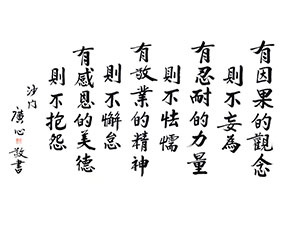 有因果的觀念
則不妄為
有忍耐的力量
則不怯懦
有敬業的精神
則不懈怠
有感恩的美德
則不抱怨
沙門
廣心
敬書